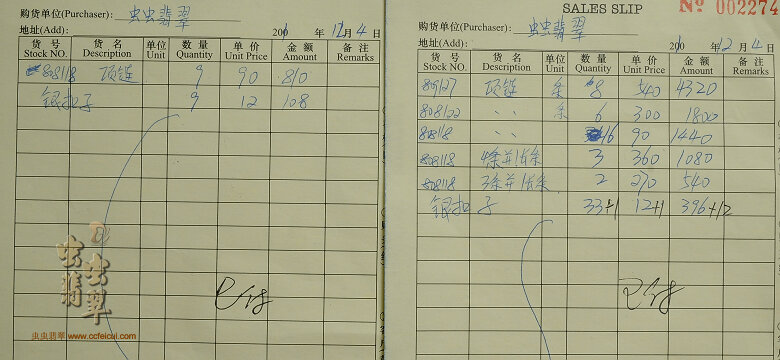 购货单位(Purchaser): 虫虫翡翠 2001年12月4日
地址(Add):
货号 Stock NO. 货名 Description 单位 Unit 数量 Quantity 单价 Unit Price 金额 Amount 备注 Remarks
808118 项链 9 90 810
银扣子 9 12 108
虫虫翡翠
虫虫翡翠 www.ccfeicui.com
SALES SLIP
No 002274
购货单位(Purchaser): 虫虫翡翠
地址(Add): 12月4日
货号 Stock NO. 货名 Description 单位 Unit 数量 Quantity 单价 Unit Price 金额 Amount 备注 Remarks
809127 项链 条 8 540 4320
808122 〃 条 6 300 1800
808118 〃 16 90 1440
808118 4条并1条 3 360 1080
808118 3条并1条 2 270 540
银扣子 33+1 12+1 396+12